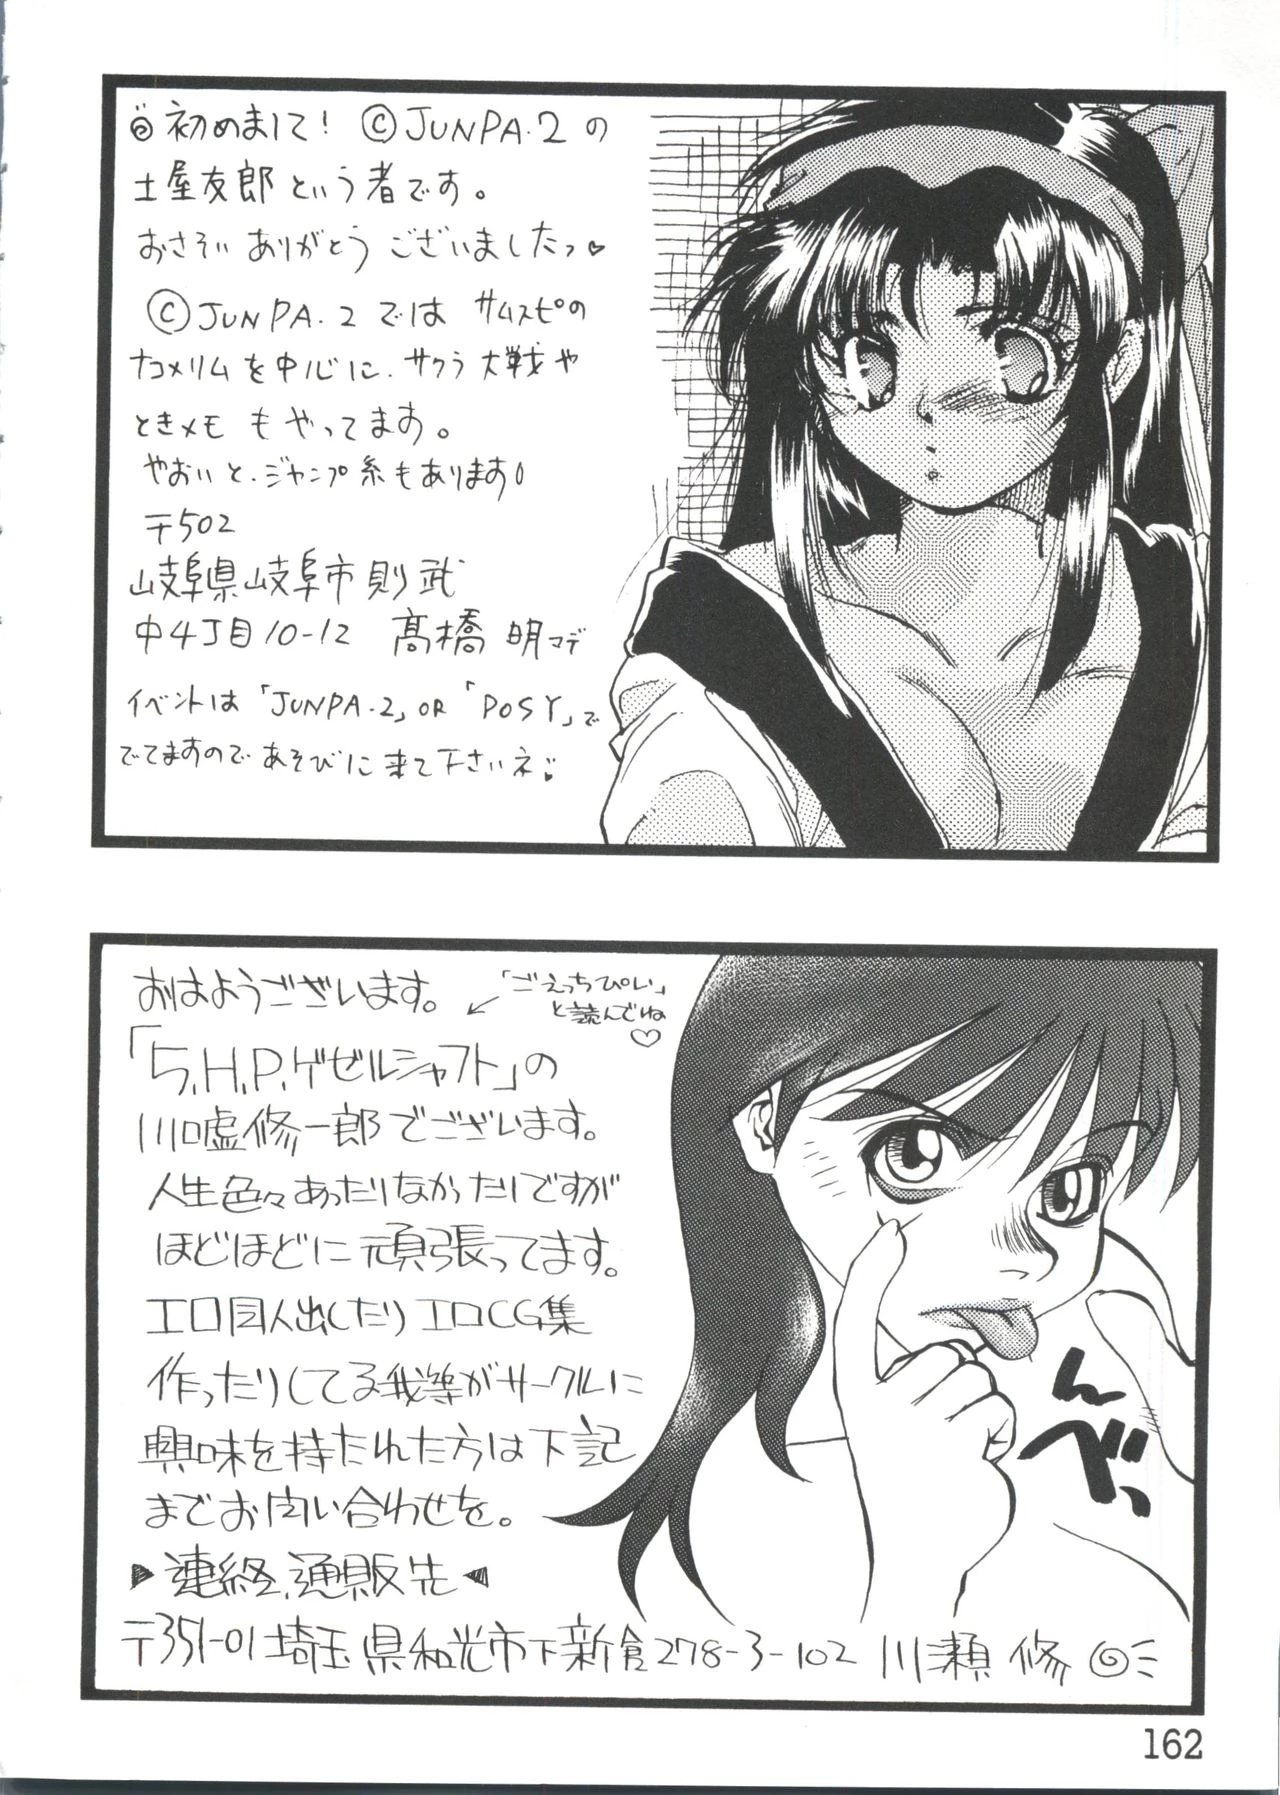 初めまして! ©JUNPA.2の
土屋友郎という者です。
おさそい ありがとう ございましたっ♡
©JUNPA.2では サムスピの
ナコメリムを中心に、サクラ大戦や
ときメモ もやってます。
やおいと、ジャンプ系もあります!
〒502
岐阜県岐阜市則武
中4丁目10-12 髙橋 明マデ
イベントは「JUNPA.2」OR「POSY」で
でてますので あそびに来て下さいネ
おはようございます。
「ごえっちぴい」
と読んでね
♡
「5.H.P.ゲゼルシャフト」の
川口虚修一郎でございます。
人生色々あったりなかったりですが
ほどほどに頑張ってます。
エロ同人出したり エロCG集
作ったりしてる我等がサークルに
興味を持たれた方は下記
までお問い合わせを。
▶連絡、通販先◀
〒351-01 埼玉県和光市下新倉278-3-102 川瀬 修
んべっ
162